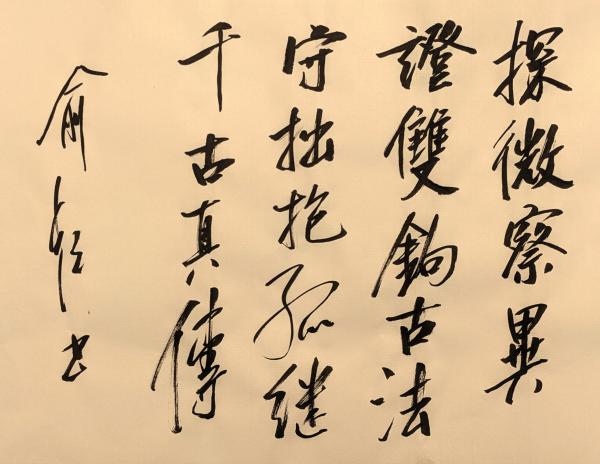 探微察異
證雙鉤古法
守拙抱孤继
千古真傳
俞 書